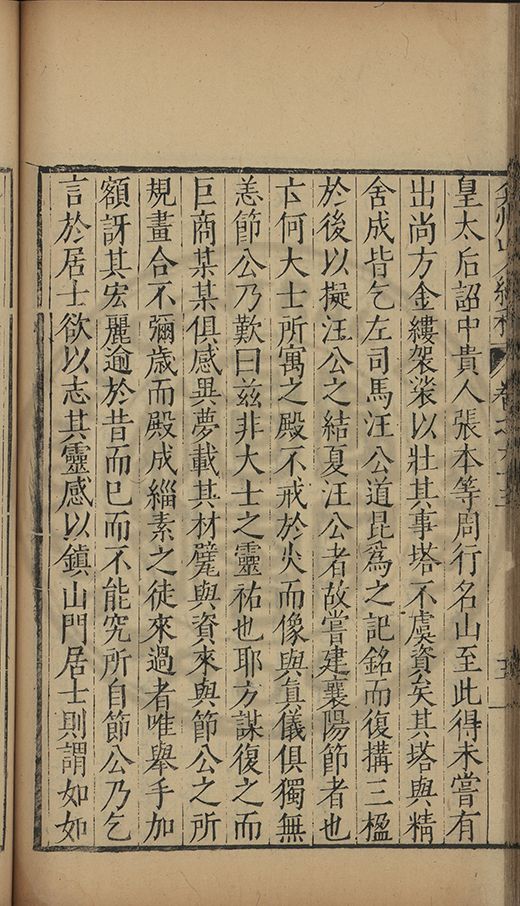 弇州山人續稿 卷之六十三 五
皇太后詔中貴人張本等周行名山至此得未嘗有
出尚方金縷袈裟以壯其事塔不虞資矣其塔與精
舍成皆乞左司馬汪公道昆爲之記銘而復搆三楹
於後以擬汪公之結夏汪公者故嘗建襄陽節者也
亡何大士所寓之殿不戒於火而像與眞儀俱獨無
恙節公乃歎曰兹非大士之靈祐也耶方謀復之而
巨商某某俱感異夢載其材甓與資來與節公之所
規畫合不彌歲而殿成緇素之徒來過者唯舉手加
額訝其宏麗逾於昔而已而不能究所自節公乃乞
言於居士欲以志其靈感以鎮山門居士則謂如如